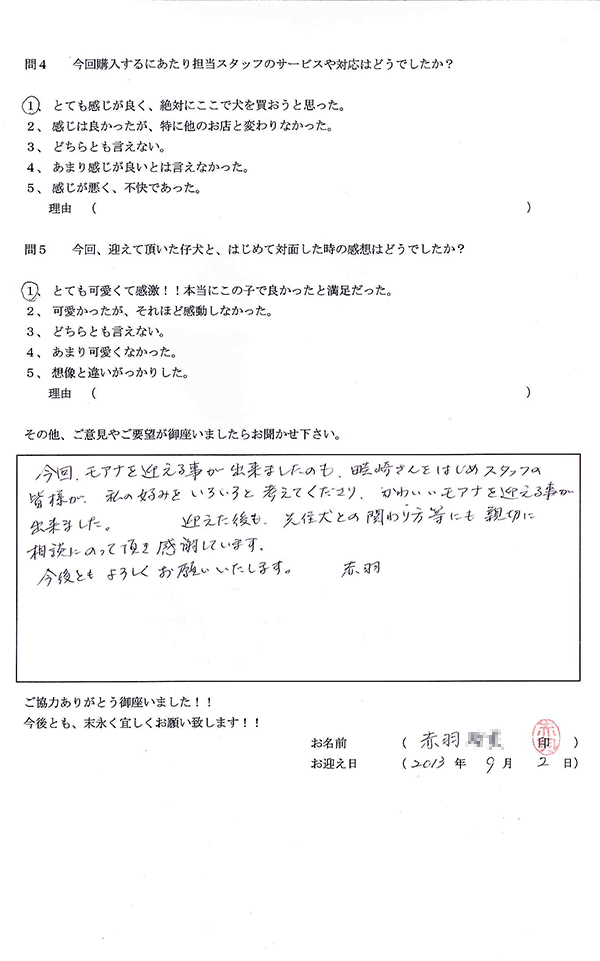 問4 今回購入するにあたり担当スタッフのサービスや対応はどうでしたか？
1、とても感じが良く、絶対にここで犬を買おうと思った。
2、感じは良かったが、特に他のお店と変わりなかった。
3、どちらとも言えない。
4、あまり感じが良いとは言えなかった。
5、感じが悪く、不快であった。
理由 （ ）
問5 今回、迎えて頂いた仔犬と、はじめて対面した時の感想はどうでしたか？
1、とても可愛くて感激！！本当にこの子で良かったと満足だった。
2、可愛かったが、それほど感動しなかった。
3、どちらとも言えない。
4、あまり可愛くなかった。
5、想像と違いがっかりした。
理由 （ ）
その他、ご意見やご要望が御座いましたらお聞かせ下さい。
今回、モアナを迎える事が出来ましたのも、崎さんをはじめスタッフの
皆様が、私の好みをいろいろと考えてくださり、かわいいモアナを迎える事が
出来ました。 迎えた後も、先住犬との関わり方等にも親切に
相談にのって頂き感謝しています。
今後ともよろしくお願いいたします。 赤羽
ご協力ありがとう御座いました！！
今後とも、末永く宜しくお願い致します！！
お名前 （ 赤羽 印 ）
お迎え日 （2013年 9月 2日）